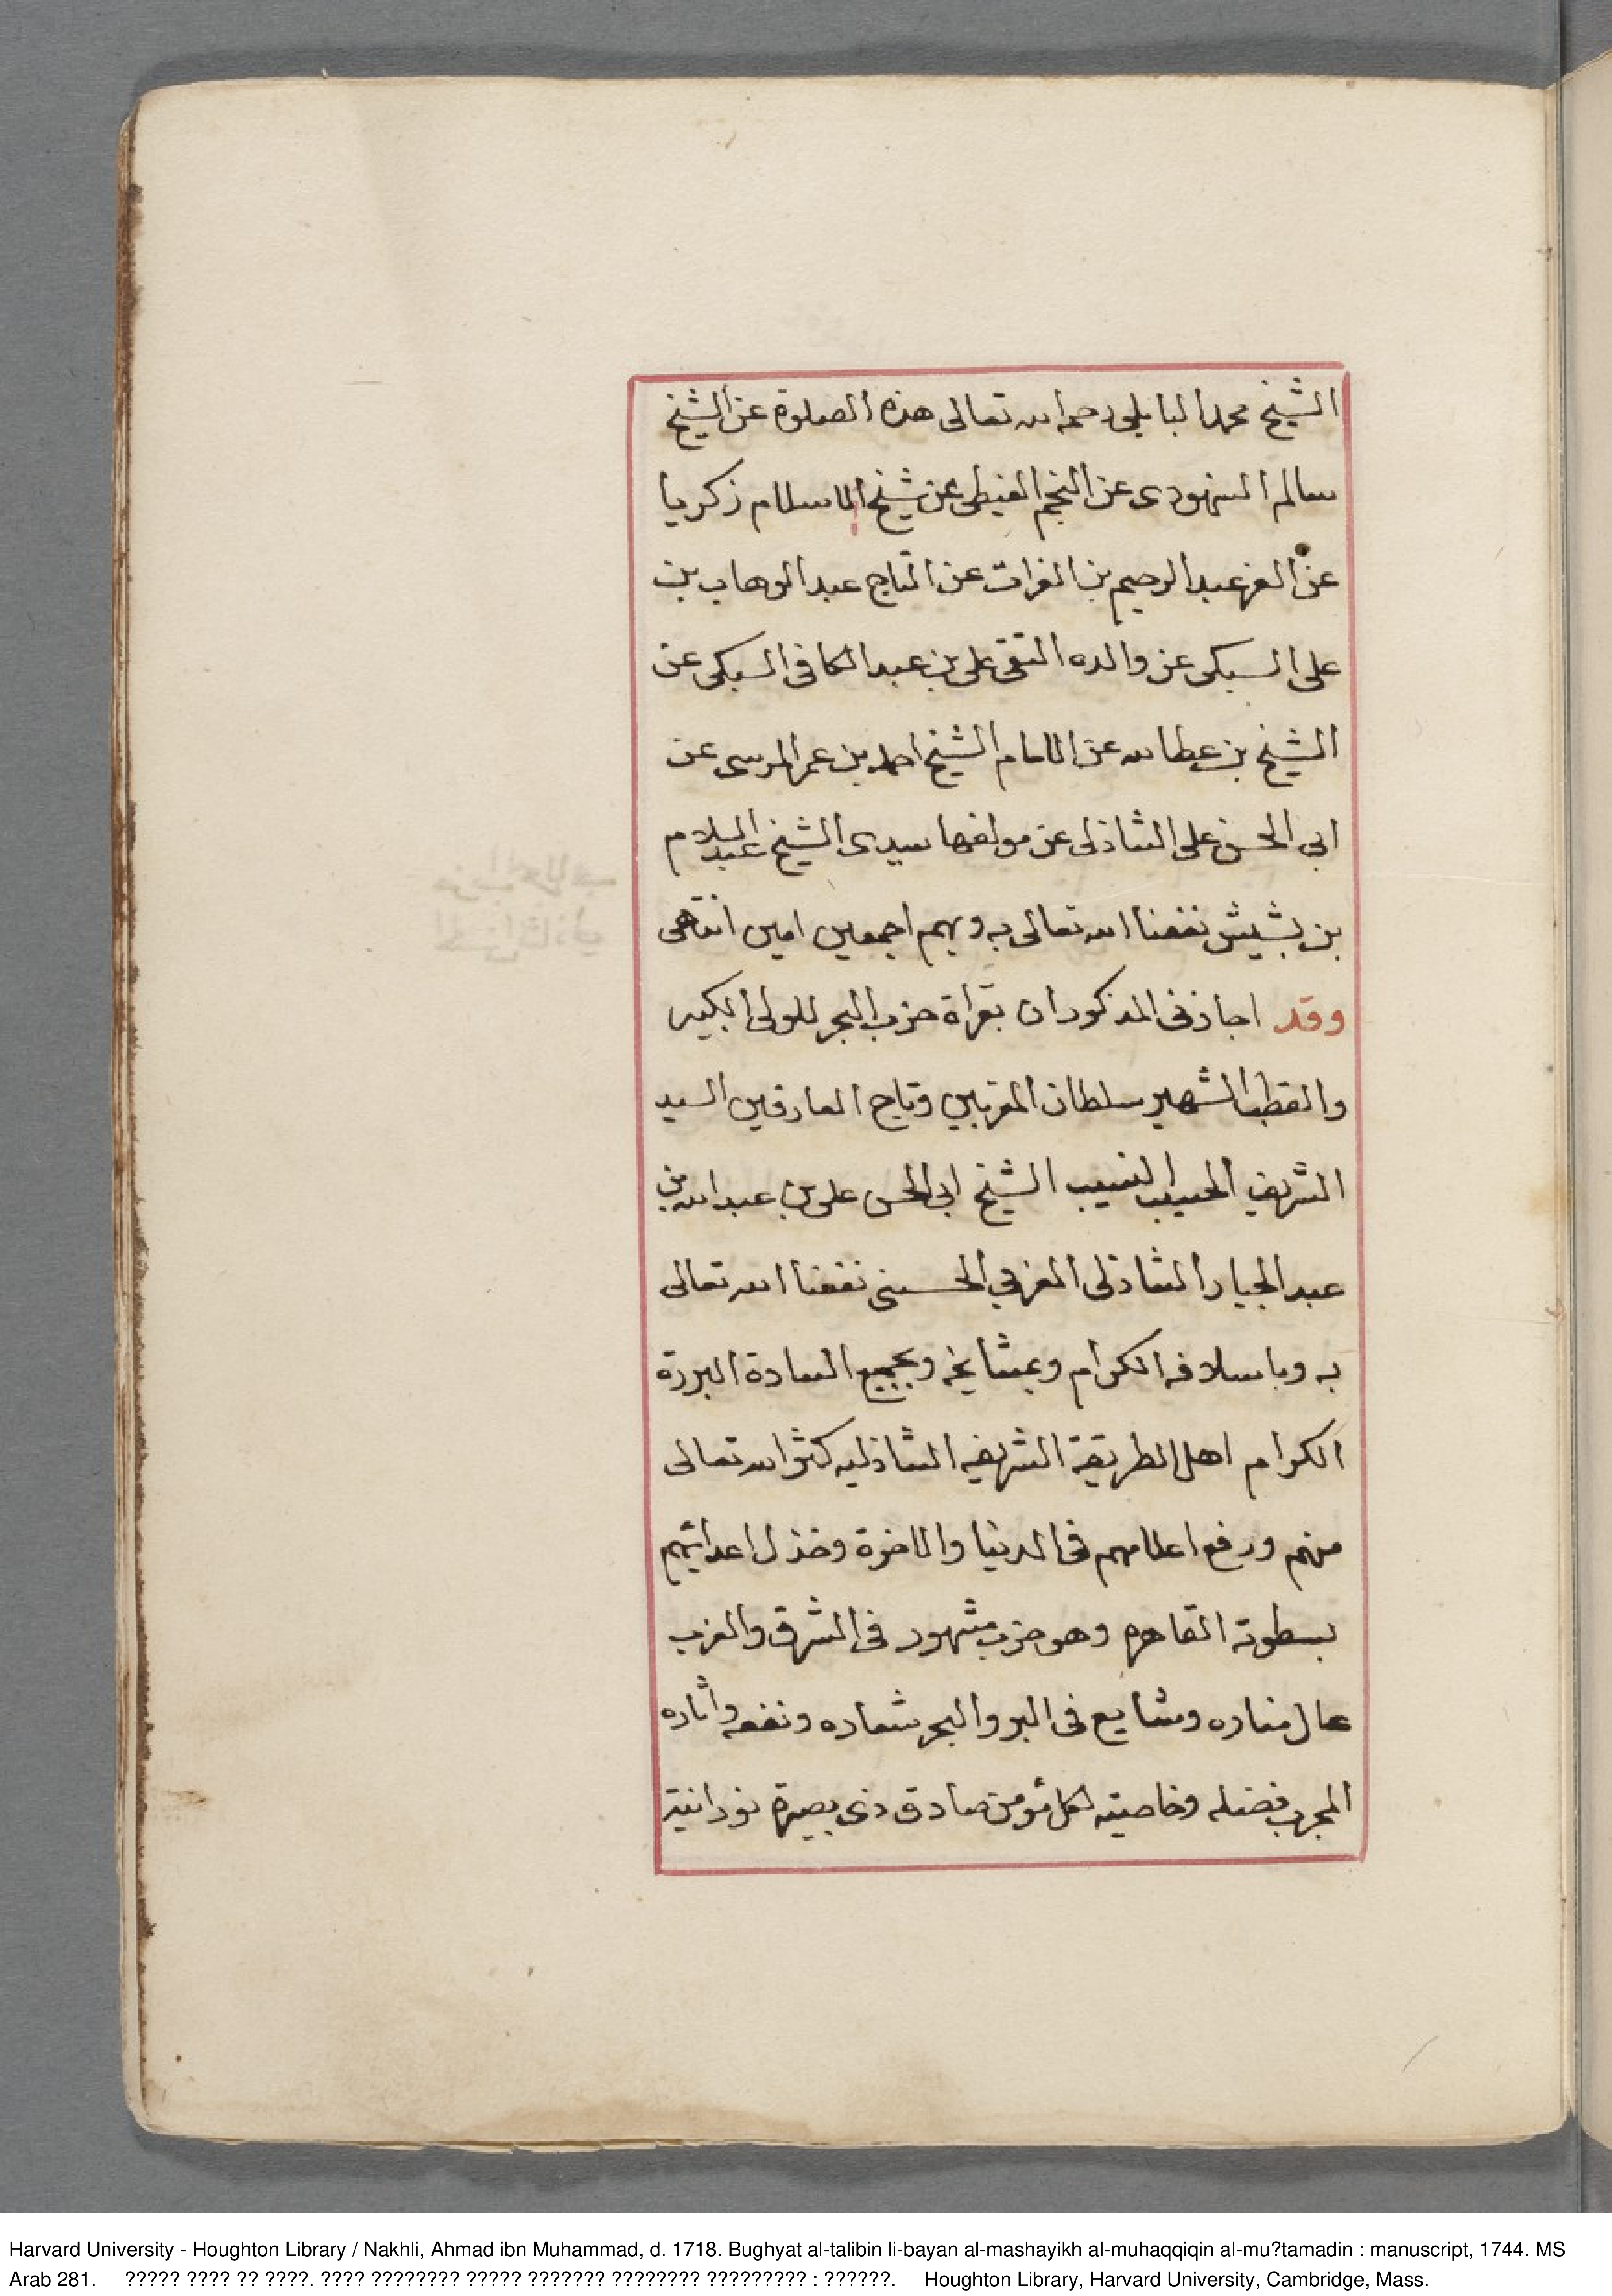 الشيخ محمد البابلي رحمه الله تعالى هذه الصلوة عن الشيخ
سالم السنهودى عن النجم الغيطى عن شيخ الاسلام زكريا
عن العز عبد الرحيم بن الفرات عن التاج عبد الوهاب بن
على السبكى عن والده التقى على بن عبد الكافى السبكى عن
الشيخ بن عطا الله عن الامام الشيخ احمد بن عمر المرسى عن
ابى الحسن على الشاذلى عن مولفها سيدى الشيخ عبد السلام
بن بشيش نفعنا الله تعالى به وبهم اجمعين امين انتهى
وقد اجازنى المذكوران بقراة حزب البحر للولى الكبير
والقطب الشهير سلطان المقربين وتاج العارفين السيد
الشريف الحسيب النسيب الشيخ ابى الحسن على بن عبد الله بن
عبد الجبار الشاذلى المغربي الحسنى نفعنا الله تعالى
به وباسلافه الكرام وبمشايخه وبجميع السادة البررة
الكرام اهل الطريقة الشريفه الشاذليه كثر الله تعالى
منهم ورفع اعلامهم فى الدنيا والاخرة وخذل اعدائهم
بسطوته القاهره وهو حزب مشهور فى الشرق والغرب
عال مناره وشايع فى البر والبحر شعاره ونفعه واثاره
المجرب فضله وخاصيته لكل مؤمن صادق ذى بصيرة نورانية
Harvard University - Houghton Library / Nakhli, Ahmad ibn Muhammad, d. 1718. Bughyat al-talibin li-bayan al-mashayikh al-muhaqqiqin al-mu?tamadin : manuscript, 1744. MS
Arab 281. ????? ???? ?? ????. ???? ???????? ????? ??????? ???????? ????????? : ??????. Houghton Library, Harvard University, Cambridge, Mass.